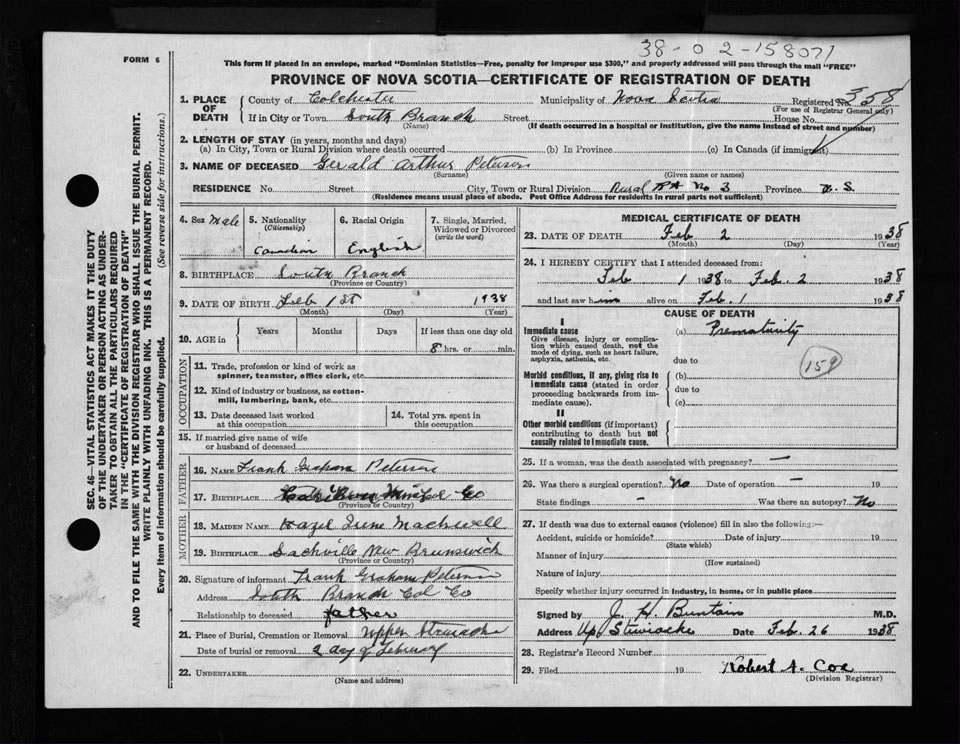 38-02-158071
FORM 6
This form if placed in an envelope, marked "Dominion Statistics—Free, penalty for improper use $300," and properly addressed will pass through the mail "FREE"
PROVINCE OF NOVA SCOTIA—CERTIFICATE OF REGISTRATION OF DEATH
1. PLACE OF DEATH County of Colchester Municipality of Nova Scotia Registered No. 358
(For use of Registrar General only)
If in City or Town South Branch Street House No.
(Name) (If death occurred in a hospital or institution, give the name instead of street and number)
2. LENGTH OF STAY (in years, months and days)
(a) In City, Town or Rural Division where death occurred (b) In Province (c) In Canada (if immigrant)
3. NAME OF DECEASED Gerald Arthur Peterson
(Surname) (Given name or names)
RESIDENCE No. Street City, Town or Rural Division Rural RR No 3 Province N. S.
(Residence means usual place of abode. Post Office Address for residents in rural parts not sufficient)
4. Sex Male
5. Nationality (Citizenship) Canadian
6. Racial Origin English
7. Single, Married, Widowed or Divorced (write the word)
8. BIRTHPLACE South Branch
(Province or Country)
9. DATE OF BIRTH Feb 1st 1938
(Month) (Day) (Year)
10. AGE in Years Months Days If less than one day old
8 hrs. or min.
OCCUPATION
11. Trade, profession or kind of work as spinner, teamster, office clerk, etc.
12. Kind of industry or business, as cotton-mill, lumbering, bank, etc.
13. Date deceased last worked at this occupation
14. Total yrs. spent in this occupation
15. If married give name of wife or husband of deceased
FATHER
16. NAME Frank Graham Peterson
17. BIRTHPLACE Col Co
(Province or Country)
MOTHER
18. MAIDEN NAME Hazel Irene
19. BIRTHPLACE Sackville New Brunswick
(Province or Country)
20. Signature of informant Frank Graham Peterson
Address South Branch Col Co
Relationship to deceased father
21. Place of Burial, Cremation or Removal Upper Stewiacke
Date of burial or removal 2 day of February
22. UNDERTAKER
(Name and address)
MEDICAL CERTIFICATE OF DEATH
23. DATE OF DEATH Feb 2 1938
(Month) (Day) (Year)
24. I HEREBY CERTIFY that I attended deceased from:
Feb 1 1938 to Feb. 2 1938
and last saw him alive on Feb. 1 1938
CAUSE OF DEATH
I
Immediate cause (a) Prematurity
Give disease, injury or complication which caused death, not the mode of dying, such as heart failure, asphyxia, asthenia, etc.
due to
159
Morbid conditions, if any, giving rise to immediate cause (stated in order proceeding backwards from immediate cause).
(b)
due to
(c)
II
Other morbid conditions (if important) contributing to death but not causally related to immediate cause.
25. If a woman, was the death associated with pregnancy? —
26. Was there a surgical operation? No Date of operation —
State findings - Was there an autopsy? No
27. If death was due to external causes (violence) fill in also the following:—
Accident, suicide or homicide? Date of injury 19
(State which)
Manner of injury
(How sustained)
Nature of injury
Specify whether injury occurred in industry, in home, or in public place
Signed by J. H. Buntain M.D.
Address Up. Stewiacke Date Feb. 26 1938
28. Registrar's Record Number
29. Filed 19 Robert A. Cox
(Division Registrar)
SEC. 46—VITAL STATISTICS ACT MAKES IT THE DUTY
OF THE UNDERTAKER OR PERSON ACTING AS UNDER-
TAKER TO OBTAIN ALL THE PARTICULARS REQUIRED
IN THE "CERTIFICATE OF REGISTRATION OF DEATH"
AND TO FILE THE SAME WITH THE DIVISION REGISTRAR WHO SHALL ISSUE THE BURIAL PERMIT.
WRITE PLAINLY WITH UNFADING INK. THIS IS A PERMANENT RECORD.
Every item of information should be carefully supplied. (See reverse side for instructions.)